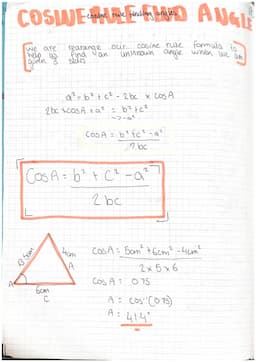 COSINE RULE FIND ANGLE
cosine rule finding angles
we are rearange our cosine rule formula to
help us find an unknown angle when we are
given 3 sides
a² = b² + c² - 2bc × cos A
2bc × cos A + a² = b² + c²
-a²
cos A = b² + c² - a²
2bc
Cos A = b² + c² - a²
2bc
B 5cm
4cm
A
A
6cm
C
Cos A = 5cm² + 6cm² - 4cm²
2 × 5 × 6
Cos A = 0.75
A = cos⁻¹ (0.75)
A = 41.4°